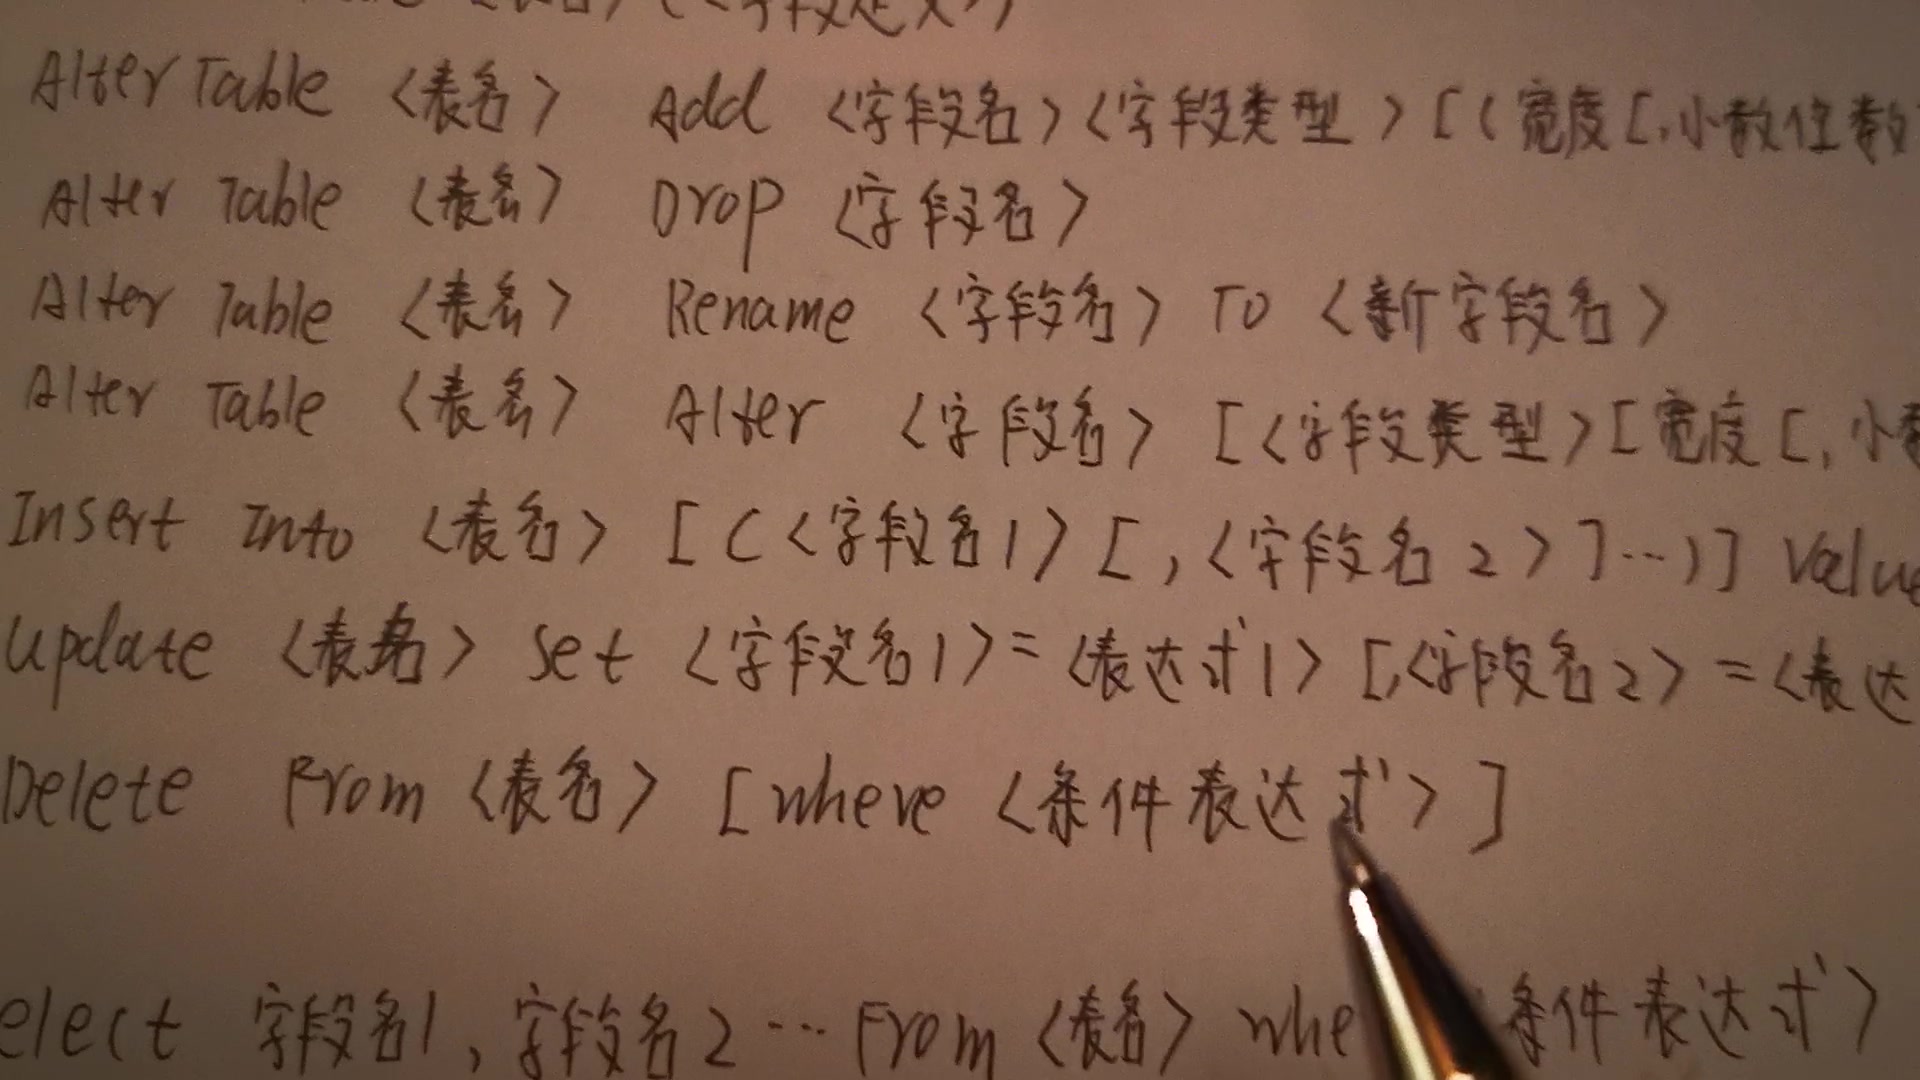 Alter Table <表名> Add <字段名><字段类型>[(宽度[,小数位数
Alter Table <表名> Drop <字段名>
Alter Table <表名> Rename <字段名> To <新字段名>
Alter Table <表名> Alter <字段名> [<字段类型>[宽度[,小
Insert Into <表名> [(<字段名1>[,<字段名2>]…)] Value
Update <表名> Set <字段名1>=<表达式1>[,<字段名2>=<表达
Delete From <表名> [where <条件表达式>]
elect 字段名1,字段名2…From <表名> whe 条件表达式>